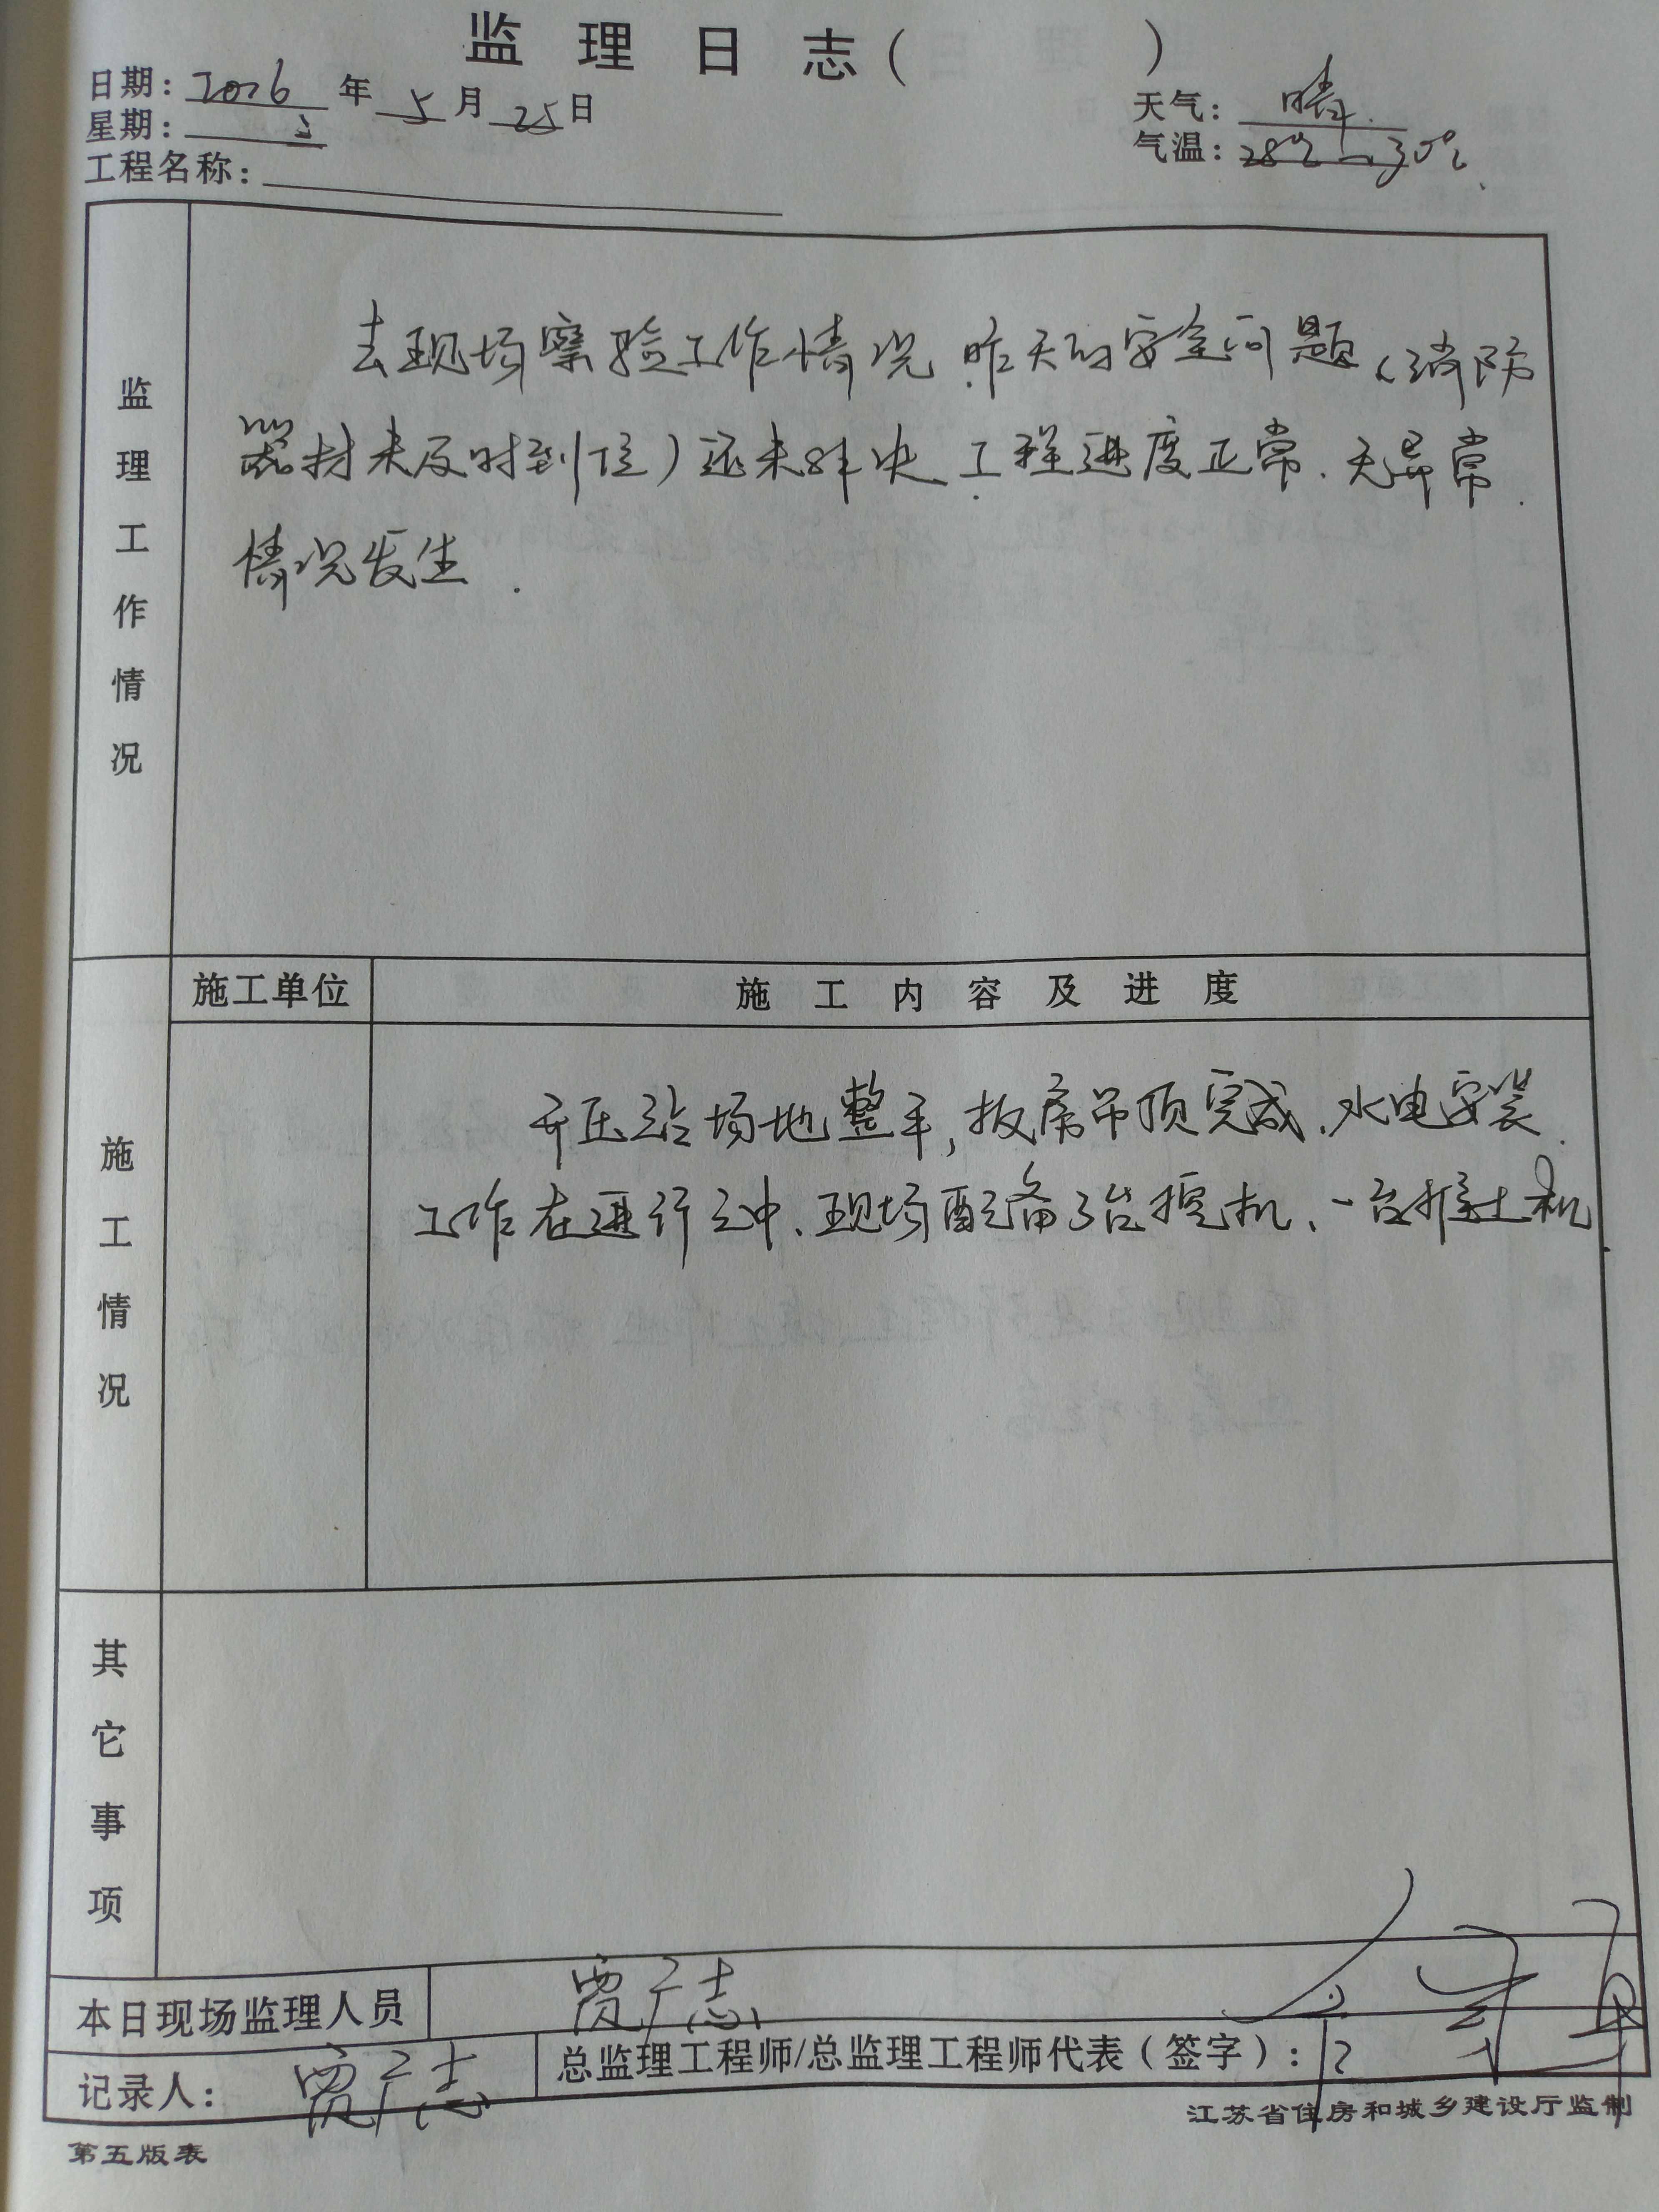 监理日志( )
日期: 2016 年 5 月 25 日
天气: 晴
星期: 三
气温: 28℃~30℃
工程名称:
监理工作情况
去现场察验工作情况.昨天的安全问题(消防
器材未及时到位)还未解决.工程进度正常.无异常
情况发生.
施工单位
施工内容及进度
施工情况
升压站场地整平,板房吊顶完成.水电安装
工作在进行之中.现场配备3台挖机、一台推土机
其它事项
本日现场监理人员 贾广志
记录人: 贾广志
总监理工程师/总监理工程师代表(签字):
江苏省住房和城乡建设厅监制
第五版表